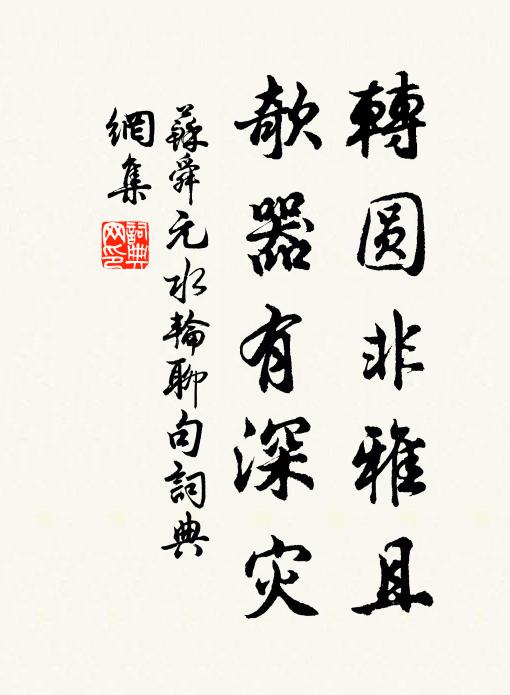 轉圆非雅且
欹器有深灾
蘇舜元水輪聊句詞典
網集
詞典
网印